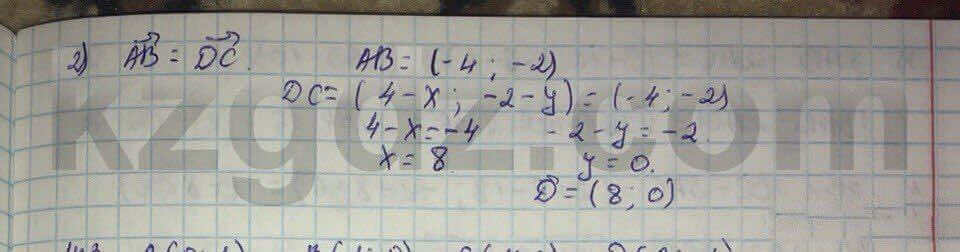 2) AB = DC. AB = (-4 ; -2)
DC = ( 4 - x ; -2 - y ) = (-4 ; -2)
4 - x = -4 - 2 - y = -2.
x = 8. y = 0.
D = (8 ; 0)
kzgoz.com